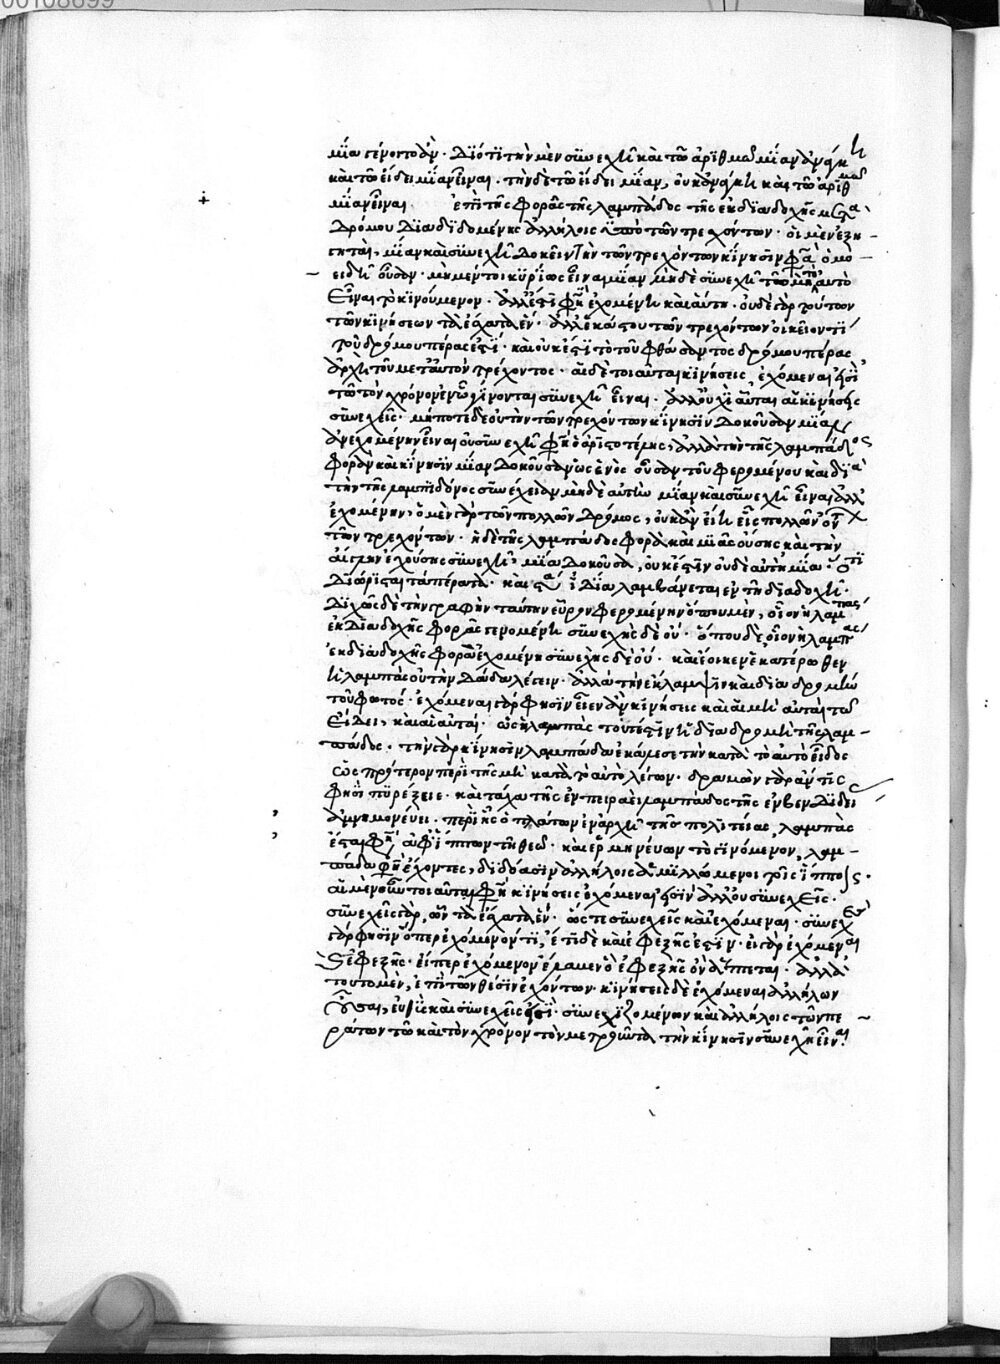 00108699
μία γένοιτο ἄν. διότι τὴν μὲν συνεχῆ καὶ τῷ ἀριθμῷ μίαν ἀνάγκη
καὶ τῷ εἴδει μίαν εἶναι. τὴν δὲ τῷ εἴδει μίαν, οὐκ ἀνάγκη καὶ τῷ ἀριθμῷ
μίαν εἶναι. ἐπὶ τῆς φορᾶς τῆς λαμπάδος τῆς ἐκ διαδοχῆς μετὰ
δρόμου διαδιδομένης ἀλλήλοις ὑπὸ τῶν τρεχόντων. οἱ μὲν ἐξη-
γηταὶ, μίαν καὶ συνεχῆ δοκεῖν τὴν τῶν τρεχόντων κίνησιν φασὶ ὁμο-
ειδῆ οὖσαν. μὴ μέντοι κυρίως εἶναι μίαν μηδὲ συνεχῆ τῷ μὴ αὐτὸ
εἶναι τὸ κινούμενον. ἀλλ' ἔστι φησὶν ἐχομένη καὶ αὕτη. οὐδὲ γὰρ τούτων
τῶν κινήσεων τὰ ἔσχατα ἕν. ἀλλ' ἑκάστου τῶν τρεχόντων οἰκεῖόν τι
τοῦ δρόμου πέρας ἐστί. καὶ οὐκ ἔστι τὸ τοῦ φθάσαντος δρόμου πέρας,
ἀρχὴ τοῦ μετ' αὐτὸν τρέχοντος. αἱ δὲ τοιαῦται κινήσεις, ἐχόμεναί εἰσι
τῷ τὸν χρόνον ἐν ᾧ γίνονται συνεχῆ εἶναι. ἀλλ' οὐχὶ αὗται αἱ κινήσεις
συνεχεῖς. μήποτε δὲ οὐ τὴν τῶν τρεχόντων κίνησιν δοκοῦσαν μίαν
ἀνεχομένην εἶναι οὐ συνεχῆ φησὶν ὁ ἀριστοτέλης, ἀλλὰ τὴν τῆς λαμπάδος
φορὰν καὶ κίνησιν μίαν δοκοῦσαν ὡς ἑνὸς οὖσαν τοῦ φερομένου καὶ διὰ
τὴν τῆς λαμπηδόνος συνέχειαν μηδὲ αὐτὴν μίαν καὶ συνεχῆ εἶναι ἀλλ'
ἐχομένην, ὁ μὲν γὰρ τῶν πολλῶν δρόμος, οὐκ ἂν εἴη εἷς πολλῶν ὄντων
τῶν τρεχόντων. ἡ δὲ τῆς λαμπάδος φορὰ καὶ μιᾶς οὔσης καὶ τὴν
αἴγλην ἐχούσης συνεχῆ, μία δοκοῦσα, οὐκ ἔστιν οὐδὲ αὐτὴ μία. ὅτι
διώρισται τὰ πέρατα. καὶ διαλαμβάνεται ἐν τῇ διαδοχῇ.
διχῶς δὲ τὴν γραφὴν ταύτην εὗρον φερομένην ὅπου μὲν, οἷον ἡ λαμπὰς
ἐκ διαδοχῆς φορᾶς γενομένη συνεχὴς δὲ οὔ. ὅπου δὲ, οἷον ἡ λαμπὰς
ἐκ διαδοχῆς φορὰ ἐχομένη συνεχὴς δὲ οὔ. καὶ ἔοικεν ἑκατέρωθεν
ἡ λαμπὰς οὐ τὴν δᾷδα λέγειν. ἀλλὰ τὴν ἔκλαμψιν καὶ διαδρομὴν
τοῦ φωτός. ἐχόμεναι γὰρ φησὶν εἶεν ἂν κινήσεις καὶ αἱ μὴ αὐταὶ τῷ
εἴδει, καὶ αἱ αὐταί. ὡς ἡ λαμπὰς τουτέστιν ἡ διαδρομὴ τῆς λαμ-
πάδος. τὴν γὰρ κίνησιν λαμπάδα ἐκάλεσε τὴν κατὰ τὸ αὐτὸ εἶδος
ὡς πρότερον περὶ τῆς μὴ κατὰ τὸ αὐτὸ λέγων. δραμὼν γὰρ ἄν τις
φησὶ πυρέξειε. καὶ τάχα τῆς ἐν πειραιεῖ λαμπάδος τῆς ἐν βενδιδείοις
ἀμνημονεύει. περὶ ἧς ὁ πλάτων ἐν ἀρχῇ τῆς πολιτείας, λαμπὰς
ἔσται φησὶ ἀφ' ἵππων τῇ θεῷ. καὶ ἑρμηνεύων τὸ γινόμενον, λαμ-
πάδα φησὶν ἔχοντες, διαδώσουσιν ἀλλήλοις ἁμιλλώμενοι τοῖς ἵπποις.
αἱ μὲν οὖν τοιαῦται φησὶ κινήσεις ἐχόμεναί εἰσιν ἀλλ' οὐ συνεχεῖς.
συνεχεῖς γὰρ, ὧν τὰ ἔσχατα ἕν. ὥστε συνεχεῖς καὶ ἐχόμεναι. συνεχὲς
γὰρ φησιν ὅπερ ἐχόμενόν τι, ἔτι δὲ καὶ ἐφεξῆς ἐστιν. εἰ γὰρ ἐχόμεναι
καὶ ἐφεξῆς. εἴπερ ἐχόμενον ἐλέγομεν ὃ ἐφεξῆς ὂν ἅπτεται. ἀλλὰ
τοῦτο μὲν, ἐπὶ τῶν θέσιν ἐχόντων. κινήσεις δὲ ἐχόμεναι ἀλλήλων
οὖσαι, εὐθὺς καὶ συνεχεῖς εἰσι. συνεχιζομένων καὶ ἀλλήλοις τῶν πε-
ράτων τῷ καὶ τὸν χρόνον τὸν μετροῦντα τὴν κίνησιν συνεχῆ εἶναι.